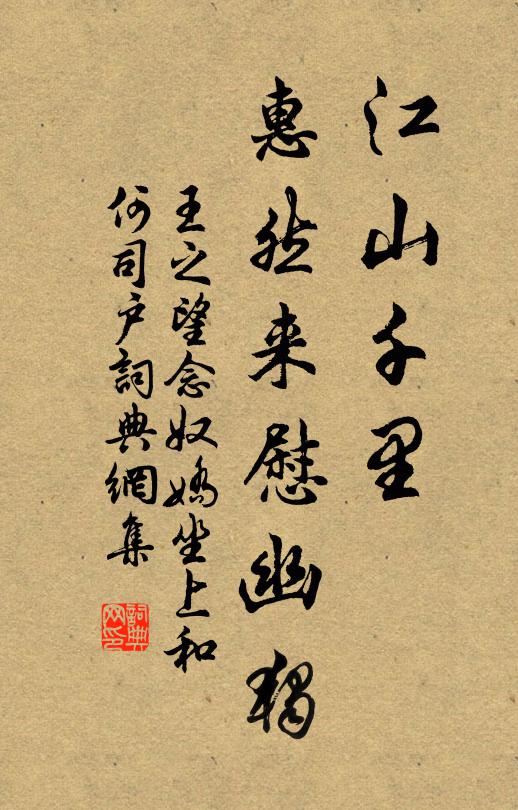 江山千里
惠然来慰幽独
王之望念奴嬌坐上和
何司户詞典網集
詞典网印